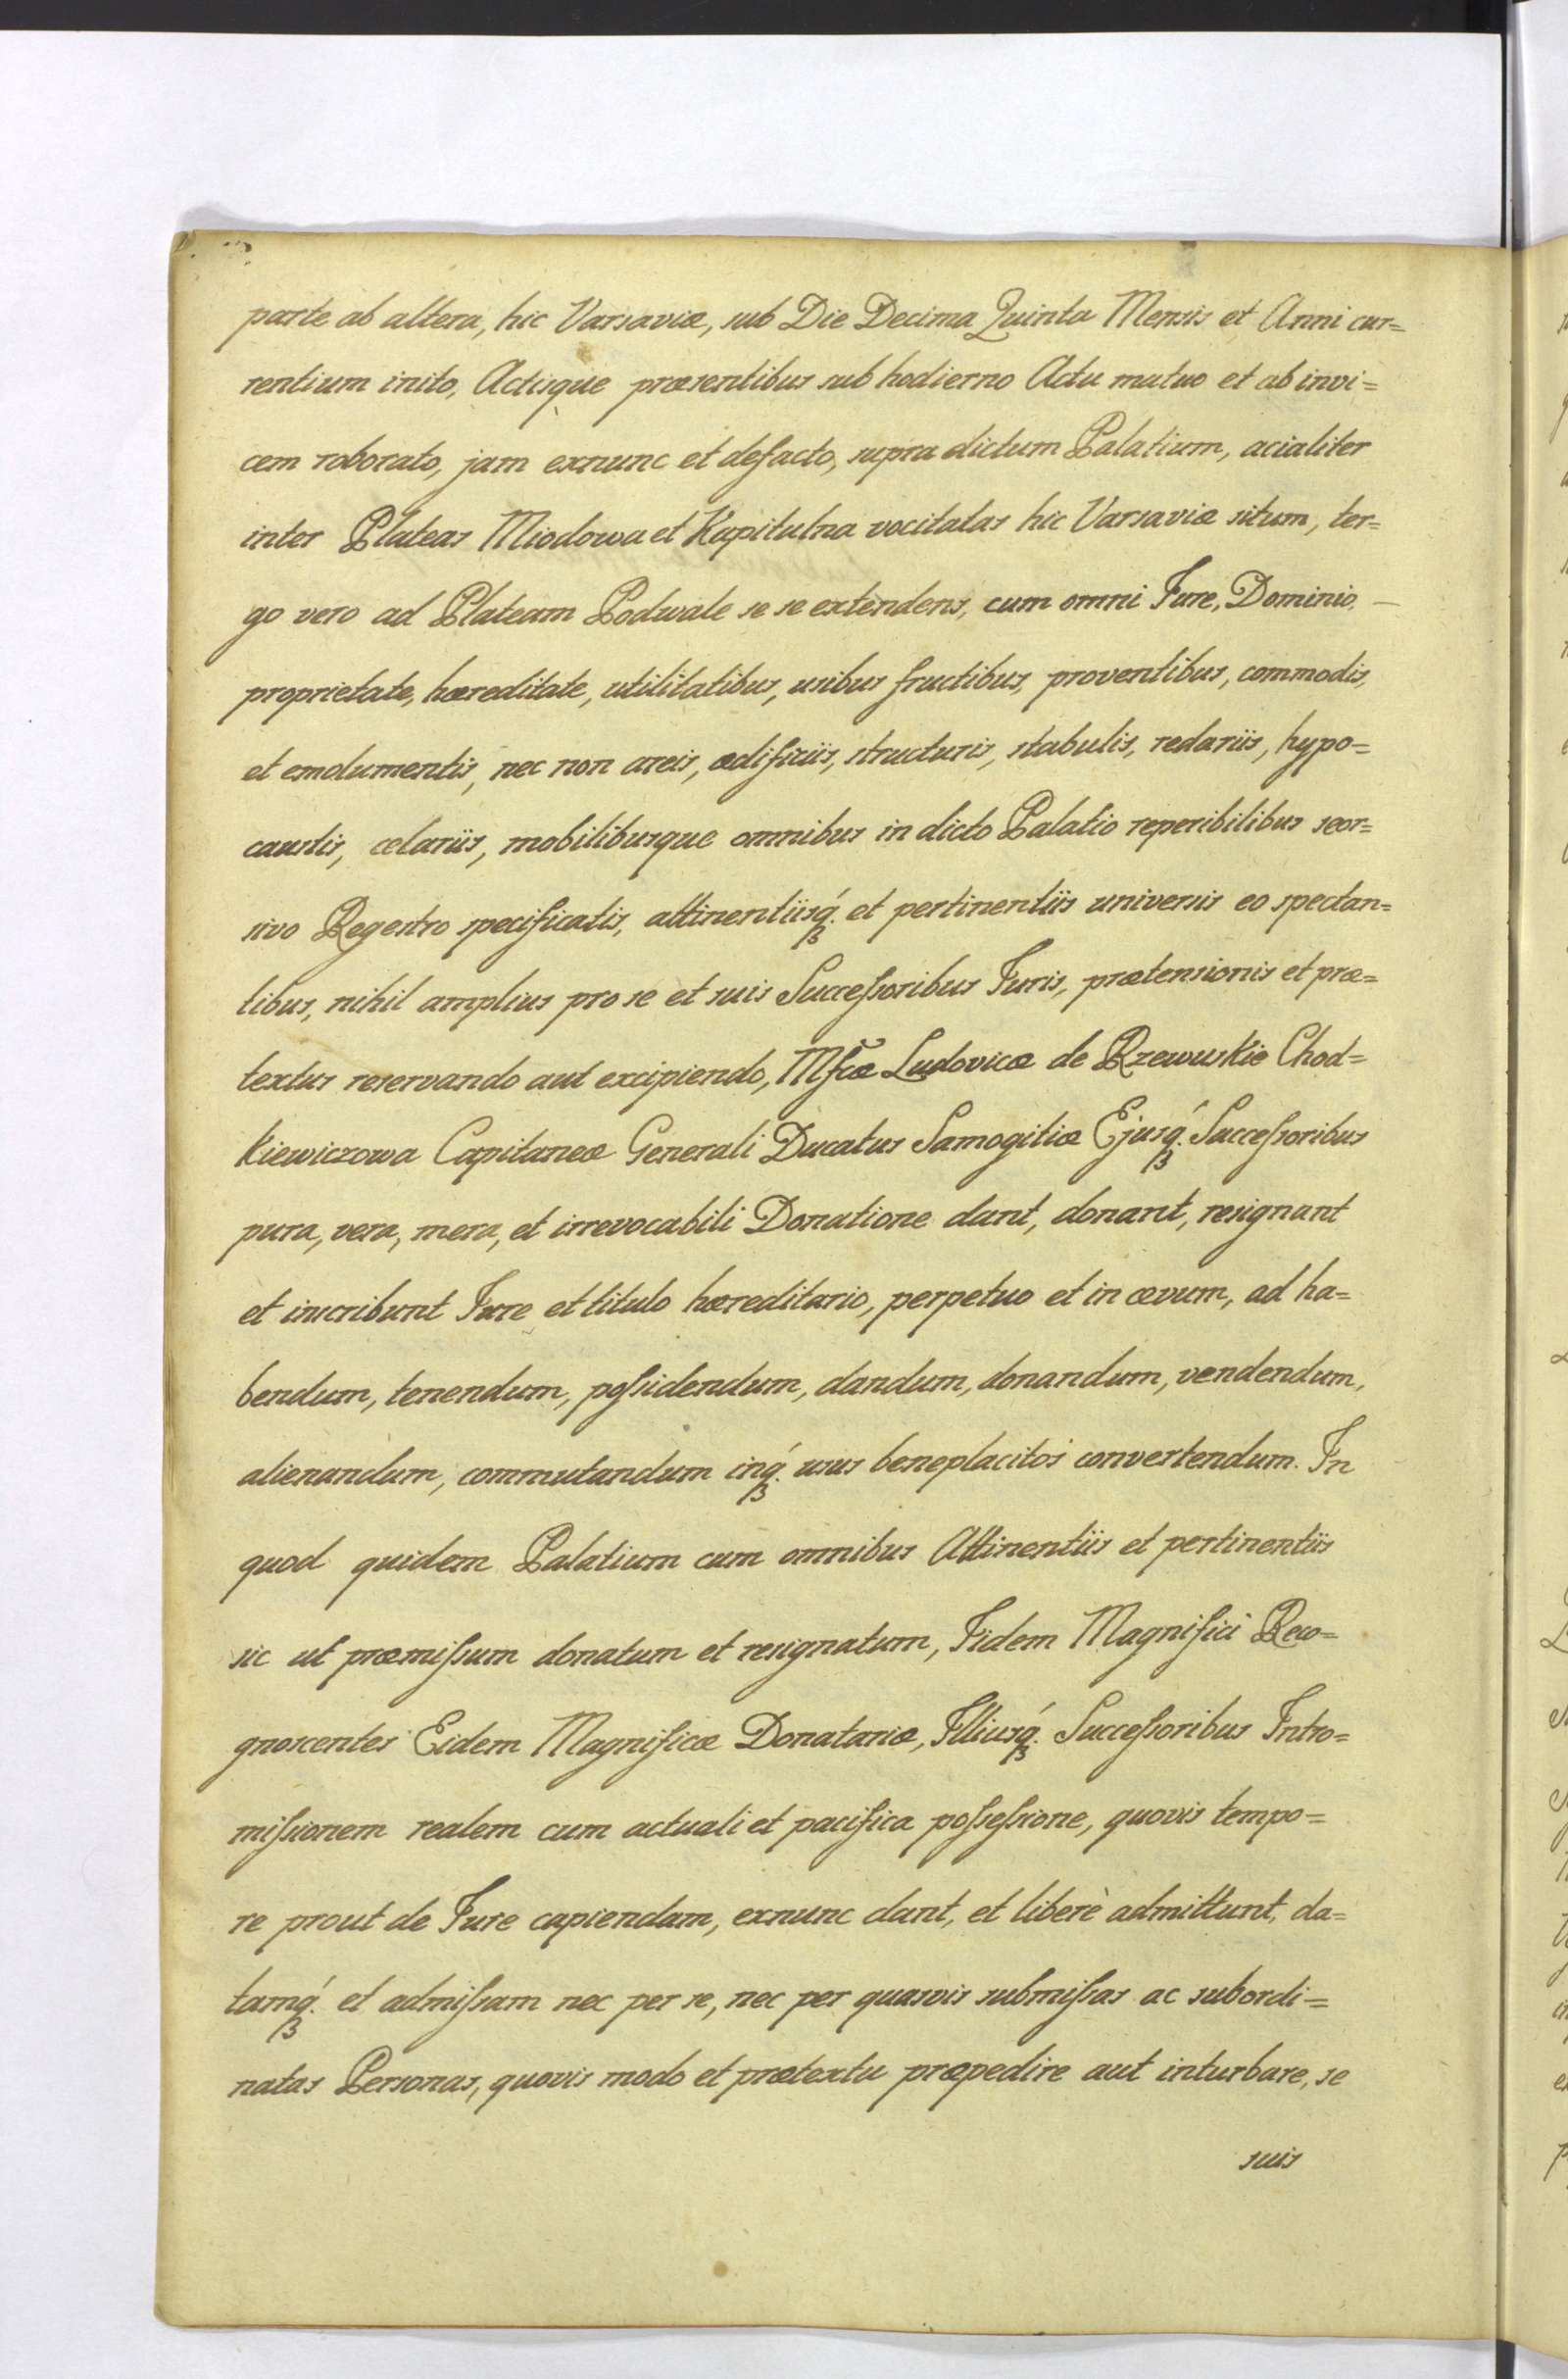 parte ab altera, hic Varsaviæ, sub Die Decima Quinta Mensis et Anni cur=
rentium inito, Actisque præsentibus sub hodierno Actu mutuo et ab invi=
cem roborato, jam exnunc et defacto, supra dictum Palatium, acialiter
inter Plateas Miodowa et Kapitulna vocitatas hic Varsaviæ situm, ter=
go vero ad Plateam Podwale se se extendens, cum omni Jure, Dominio, —
proprietate, hæreditate, utilitatibus, usibus fructibus, proventibus, commodis,
et emolumentis, nec non areis, ædificiis, structuris, stabulis, redariis, hypo=
caustis, celariis, mobilibusque omnibus in dicto Palatio reperibilibus seor=
sivo Regestro specificatis, attinentiisq́. et pertinentiis universis eo spectan=
tibus, nihil amplius pro se et suis Successoribus Juris, prætensionis et præ=
textus reservando aut excipiendo, Mfcæ Ludovicæ de Rzewuskie Chod=
kiewiczowa Capitaneæ Generali Ducatus Samogitiæ Ejusq́. Successoribus
pura, vera, mera, et irrevocabili Donatione dant, donant, resignant
et inscribunt Jure et titulo hæreditario, perpetuo et in ævum, ad ha=
bendum, tenendum, possidendum, dandum, donandum, vendendum,
alienandum, commutandum inq́. usus beneplacitos convertendum. In
quod quidem Palatium cum omnibus Attinentiis et pertinentiis
sic ut præmissum donatum et resignatum, Iidem Magnifici Reco=
gnoscentes Eidem Magnificæ Donatariæ, Illiusq́. Successoribus Intro=
missionem realem cum actuali et pacifica possessione, quovis tempo=
re prout de Jure capiendam, exnunc dant, et liberè admittunt, da=
tamq́. et admissam nec per se, nec per quasvis submissas ac subordi=
natas Personas, quovis modo et prætextu præpedire aut inturbare, se
suis